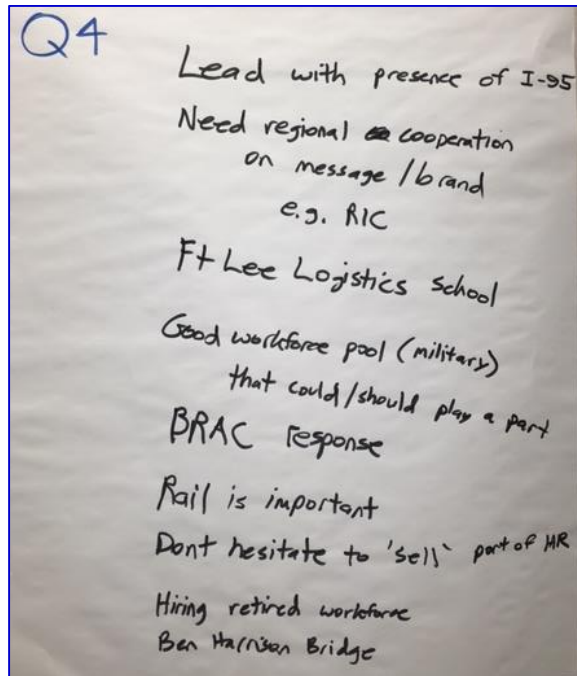 Q4
Lead with presence of I-95
Need regional cooperation
on message/brand
e.g. RIC
Ft Lee Logistics School
Good workforce pool (military)
that could/should play a part
BRAC response
Rail is important
Dont hesitate to 'sell' part of HR
Hiring retired workforce
Ben Harrison Bridge